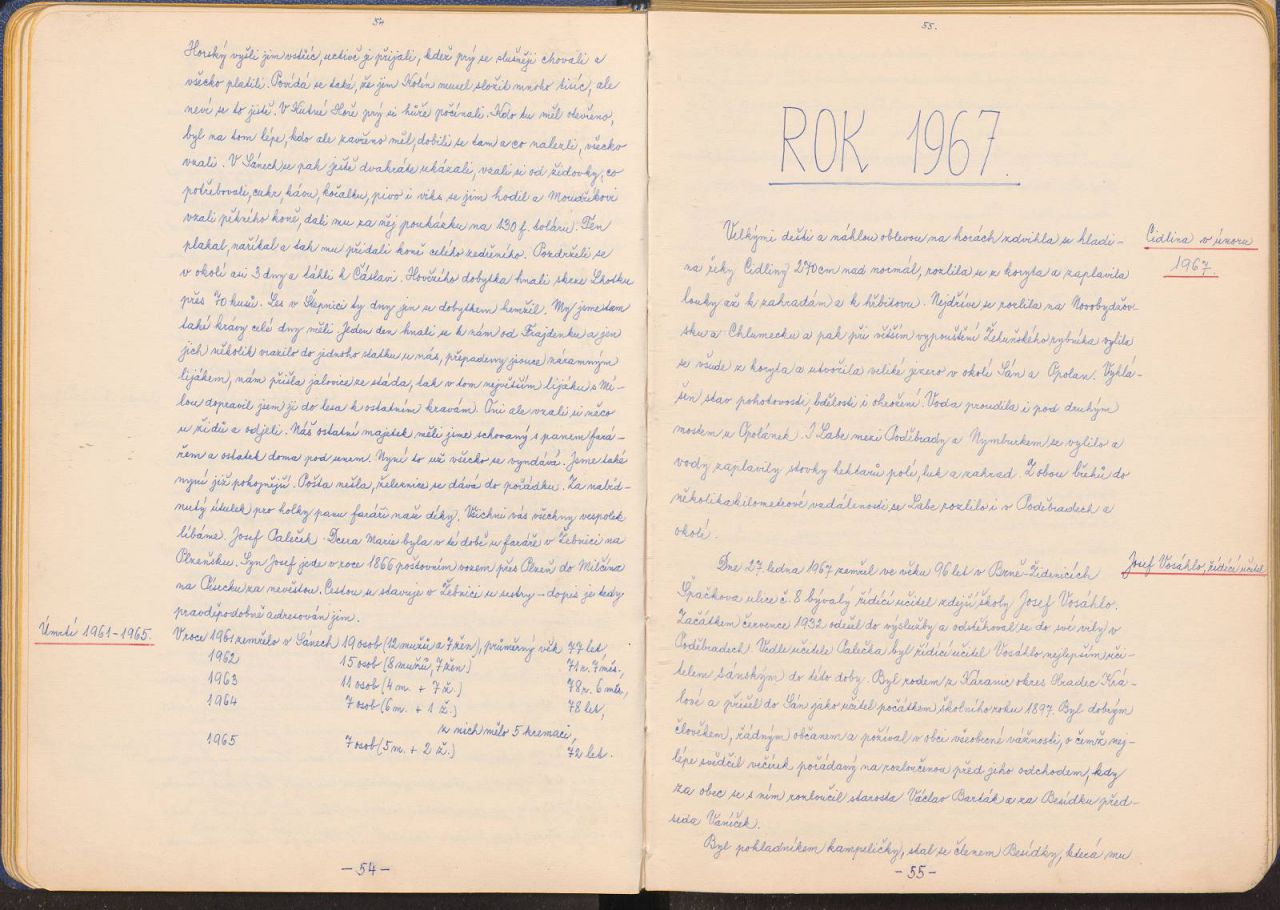 54
Horský vyšli jim vstříc, uctivě je přijali, kdež prý se slušněji chovali a
všecko platili. Povídá se také, že jim Kolín musel složit mnoho tisíc, ale
neví se to jistě. V Kutné Hoře prý si hůře počínali. Kdo tu měl otevřeno,
byl na tom lépe, kdo ale zavřeno měl, dobili se tam a co nalezli, všecko
vzali. V Sánech se pak ještě dvakráte ukázali, vzali si od židovky, co
potřebovali, cukr, kávu, kořalku, pivo i viks se jim hodil a Moudříkovi
vzali pěkného koně, dali mu za něj poukázku na 130 f. tolárů. Ten
plakal, naříkal a tak mu přidali koně celého sedřeného. Pozdrželi se
v okolí asi 3 dny a táhli k Čáslavi. Hovězího dobytka hnali skrze Lhotku
přes 70 kusů. Les v Štěpnici ty dny jen se dobytkem hemžil. My jsme tam
také krávy celé dny měli. Jeden den hnali se k nám od Frajdenku a jen
jich několik vrazilo do jednoho statku u nás, přepadeny jsouce náramným
lijákem, nám přišla jalovice ze stáda, tak v tom největším lijáku s Mi-
lou dopravil jsem ji do lesa k ostatním kravám. Oni ale vzali si něco
u židů a odjeli. Náš ostatní majetek měli jsme schovaný s panem fará-
řem a ostatek doma pod unem. Nyní to už všecko se vyndává. Jsme také
nyní již pokojnější. Pošta nešla, železnice se dává do pořádku. Za nabíd-
nutý útulek pro holky panu faráři naše díky. Všichni vás všechny vespolek
líbáme. Josef Paleček. Dcera Marie byla v té době u faráře v Žebnici na
Plzeňsku. Syn Josef jede v roce 1866 poštovním vozem přes Plzeň do Milčina
na Písecku za nevěstou. Cestou se stavuje v Žebnici u sestry – dopis je tedy
pravděpodobně adresován jim.
Úmrtí 1961-1965.
V roce 1961 zemřelo v Sánech 19 osob (12 mužů a 7 žen), průměrný věk 77 let,
1962 15 osob (8 mužů, 7 žen) 71 r. 7 měs.,
1963 11 osob (4 m. + 7 ž.) 78 r. 6 měs.,
1964 7 osob (6 m. + 1 ž.) 78 let,
z nich mělo 5 kremaci,
1965 7 osob (5 m. + 2 ž.) 72 let.
– 54 –
55.
ROK 1967.
Cidlina v únoru
1967.
Velkými dešti a náhlou oblevou na horách zdvihla se hladi-
na řeky Cidliny 270 cm nad normál, rozlila se z koryta a zaplavila
louky až k zahradám a k hřbitovu. Nejdříve se rozlila na Novobydžov-
sku a Chlumecku a pak při větším vypouštění Žehuňského rybníka vylila
se všude z koryta a utvořila veliké jezero v okolí Sán a Opolan. Vyhlá-
šen stav pohotovosti, bdělosti i ohrožení. Voda proudila i pod druhým
mostem u Opolánek. I Labe mezi Poděbrady a Nymburkem se vylilo a
vody zaplavily stovky hektarů polí, luk a zahrad. Z obou břehů do
několikakilometrové vzdálenosti se Labe rozlilo i v Poděbradech a
okolí.
Josef Vosáhlo, řídící učitel
Dne 27. ledna 1967 zemřel ve věku 96 let v Brně-Židenicích
Špačkova ulice č. 8 bývalý řídící učitel zdejší školy Josef Vosáhlo.
Začátkem července 1932 odešel do výslužby a odstěhoval se do své vily v
Poděbradech. Vedle učitele Palečka byl řídící učitel Vosáhlo nejlepším uči-
telem sánským do této doby. Byl rodem z Káranic okres Hradec Krá-
lové a přišel do Sán jako učitel počátkem školního roku 1897. Byl dobrým
člověkem, řádným občanem a požíval v obci všeobecné vážnosti, o čemž nej-
lépe svědčil večírek pořádaný na rozloučenou před jeho odchodem, kdy
za obec se s ním rozloučil starosta Václav Barták a za Besídku před-
seda Vaníček.
Byl pokladníkem kampeličky, stal se členem Besídky, která mu
– 55 –